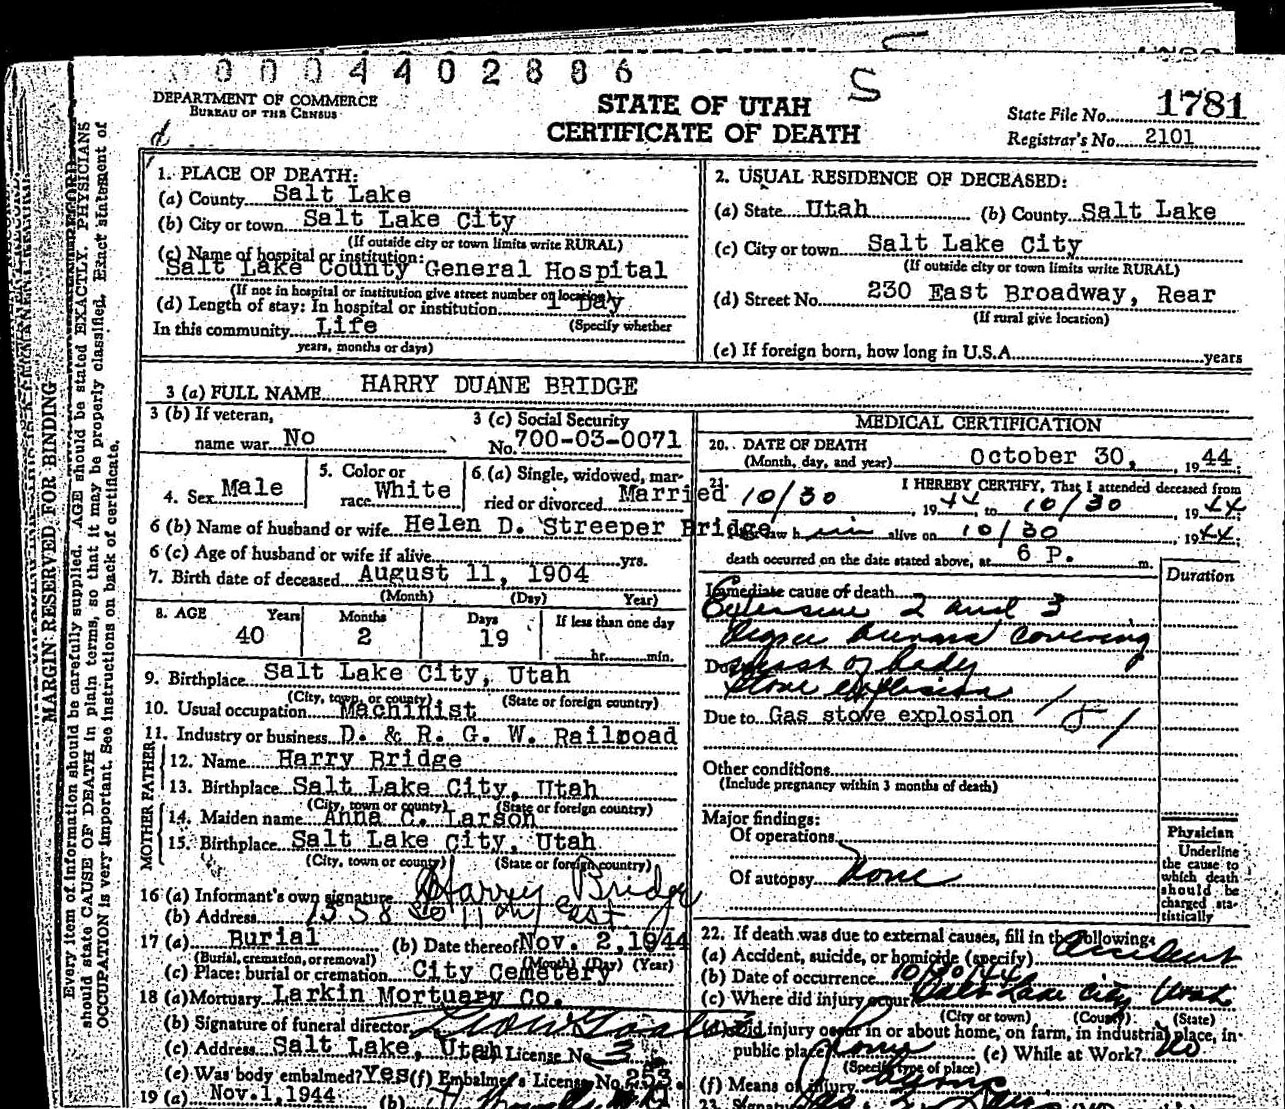 0 0 0 4 4 0 2 8 8 6
S
DEPARTMENT OF COMMERCE
BUREAU OF THE CENSUS
STATE OF UTAH
CERTIFICATE OF DEATH
State File No. 1781
Registrar's No. 2101
MARGIN RESERVED FOR BINDING
Every item of information should be carefully supplied. AGE should be stated EXACTLY. PHYSICIANS
should state CAUSE OF DEATH in plain terms, so that it may be properly classified. Exact statement of
OCCUPATION is very important. See instructions on back of certificate.
1. PLACE OF DEATH:
(a) County Salt Lake
(b) City or town Salt Lake City
(If outside city or town limits write RURAL)
(c) Name of hospital or institution:
Salt Lake County General Hospital
(If not in hospital or institution give street number or location)
(d) Length of stay: In hospital or institution 1 Day
In this community Life (Specify whether
years, months or days)
2. USUAL RESIDENCE OF DECEASED:
(a) State Utah (b) County Salt Lake
(c) City or town Salt Lake City
(If outside city or town limits write RURAL)
(d) Street No. 230 East Broadway, Rear
(If rural give location)
(e) If foreign born, how long in U.S.A. years
3 (a) FULL NAME HARRY DUANE BRIDGE
3 (b) If veteran,
name war No
3 (c) Social Security
No. 700-03-0071
4. Sex Male
5. Color or
race White
6 (a) Single, widowed, mar-
ried or divorced Married
6 (b) Name of husband or wife Helen D. Streeper Bridge
6 (c) Age of husband or wife if alive yrs.
7. Birth date of deceased August 11, 1904
(Month) (Day) Year)
8. AGE Years Months Days If less than one day
40 2 19 hr. min.
9. Birthplace Salt Lake City, Utah
(City, town, or county) (State or foreign country)
10. Usual occupation Machinist
11. Industry or business D. & R. G. W. Railroad
FATHER
12. Name Harry Bridge
13. Birthplace Salt Lake City, Utah
(City, town or county) (State or foreign country)
MOTHER
14. Maiden name Anna C. Larson
15. Birthplace Salt Lake City, Utah
(City, town or county) (State or foreign country)
16 (a) Informant's own signature Harry Bridge
(b) Address 1558 So 11th East
17 (a) Burial (b) Date thereof Nov. 2, 1944
(Burial, cremation, or removal) (Month) (Day) (Year)
(c) Place: burial or cremation City Cemetery
18 (a) Mortuary Larkin Mortuary Co.
(b) Signature of funeral director
(c) Address Salt Lake, Utah (d) License No. 3
(e) Was body embalmed? Yes (f) Embalmer's License No.
19 (a) Nov. 1, 1944 (b)
MEDICAL CERTIFICATION
20. DATE OF DEATH
(Month, day, and year) October 30, 1944
21. I HEREBY CERTIFY, That I attended deceased from
10/30, 1944 to 10/30, 1944
I last saw him alive on 10/30, 1944;
death occurred on the date stated above, at 6 P. m.
Duration
Immediate cause of death
Extensive 2 and 3
degree burns covering
Due to most of body
stove explosion
Due to Gas stove explosion
Other conditions
(Include pregnancy within 3 months of death)
Major findings:
Of operations
Of autopsy None
Physician
Underline
the cause to
which death
should be
charged sta-
tistically
22. If death was due to external causes, fill in the following:
(a) Accident, suicide, or homicide (specify) Accident
(b) Date of occurrence 10/30/44
(c) Where did injury occur Salt Lake City Utah
(City or town) (County) (State)
(d) Did injury occur in or about home, on farm, in industrial place, in-
public place? Home (e) While at Work? No
(Specify type of place)
(f) Means of injury
23. Signature